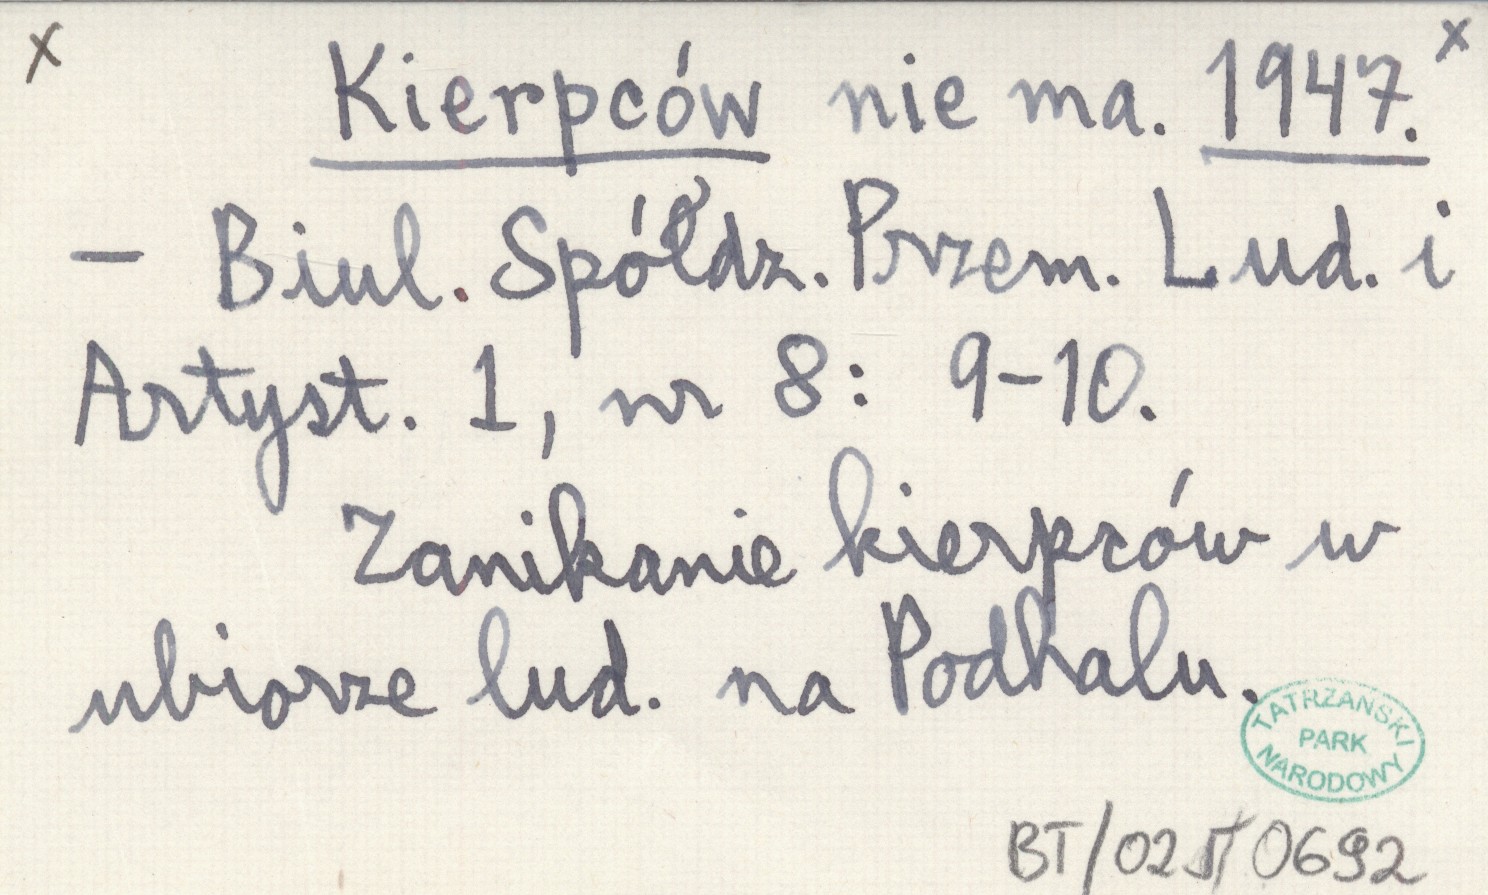 x x
Kierpców nie ma. 1947.
– Biul. Spółdz. Przem. Lud. i
Artyst. 1, nr 8: 9-10.
Zanikanie kierpców w
ubiorze lud. na Podhalu.
TATRZAŃSKI
PARK
NARODOWY
BT/02 0692